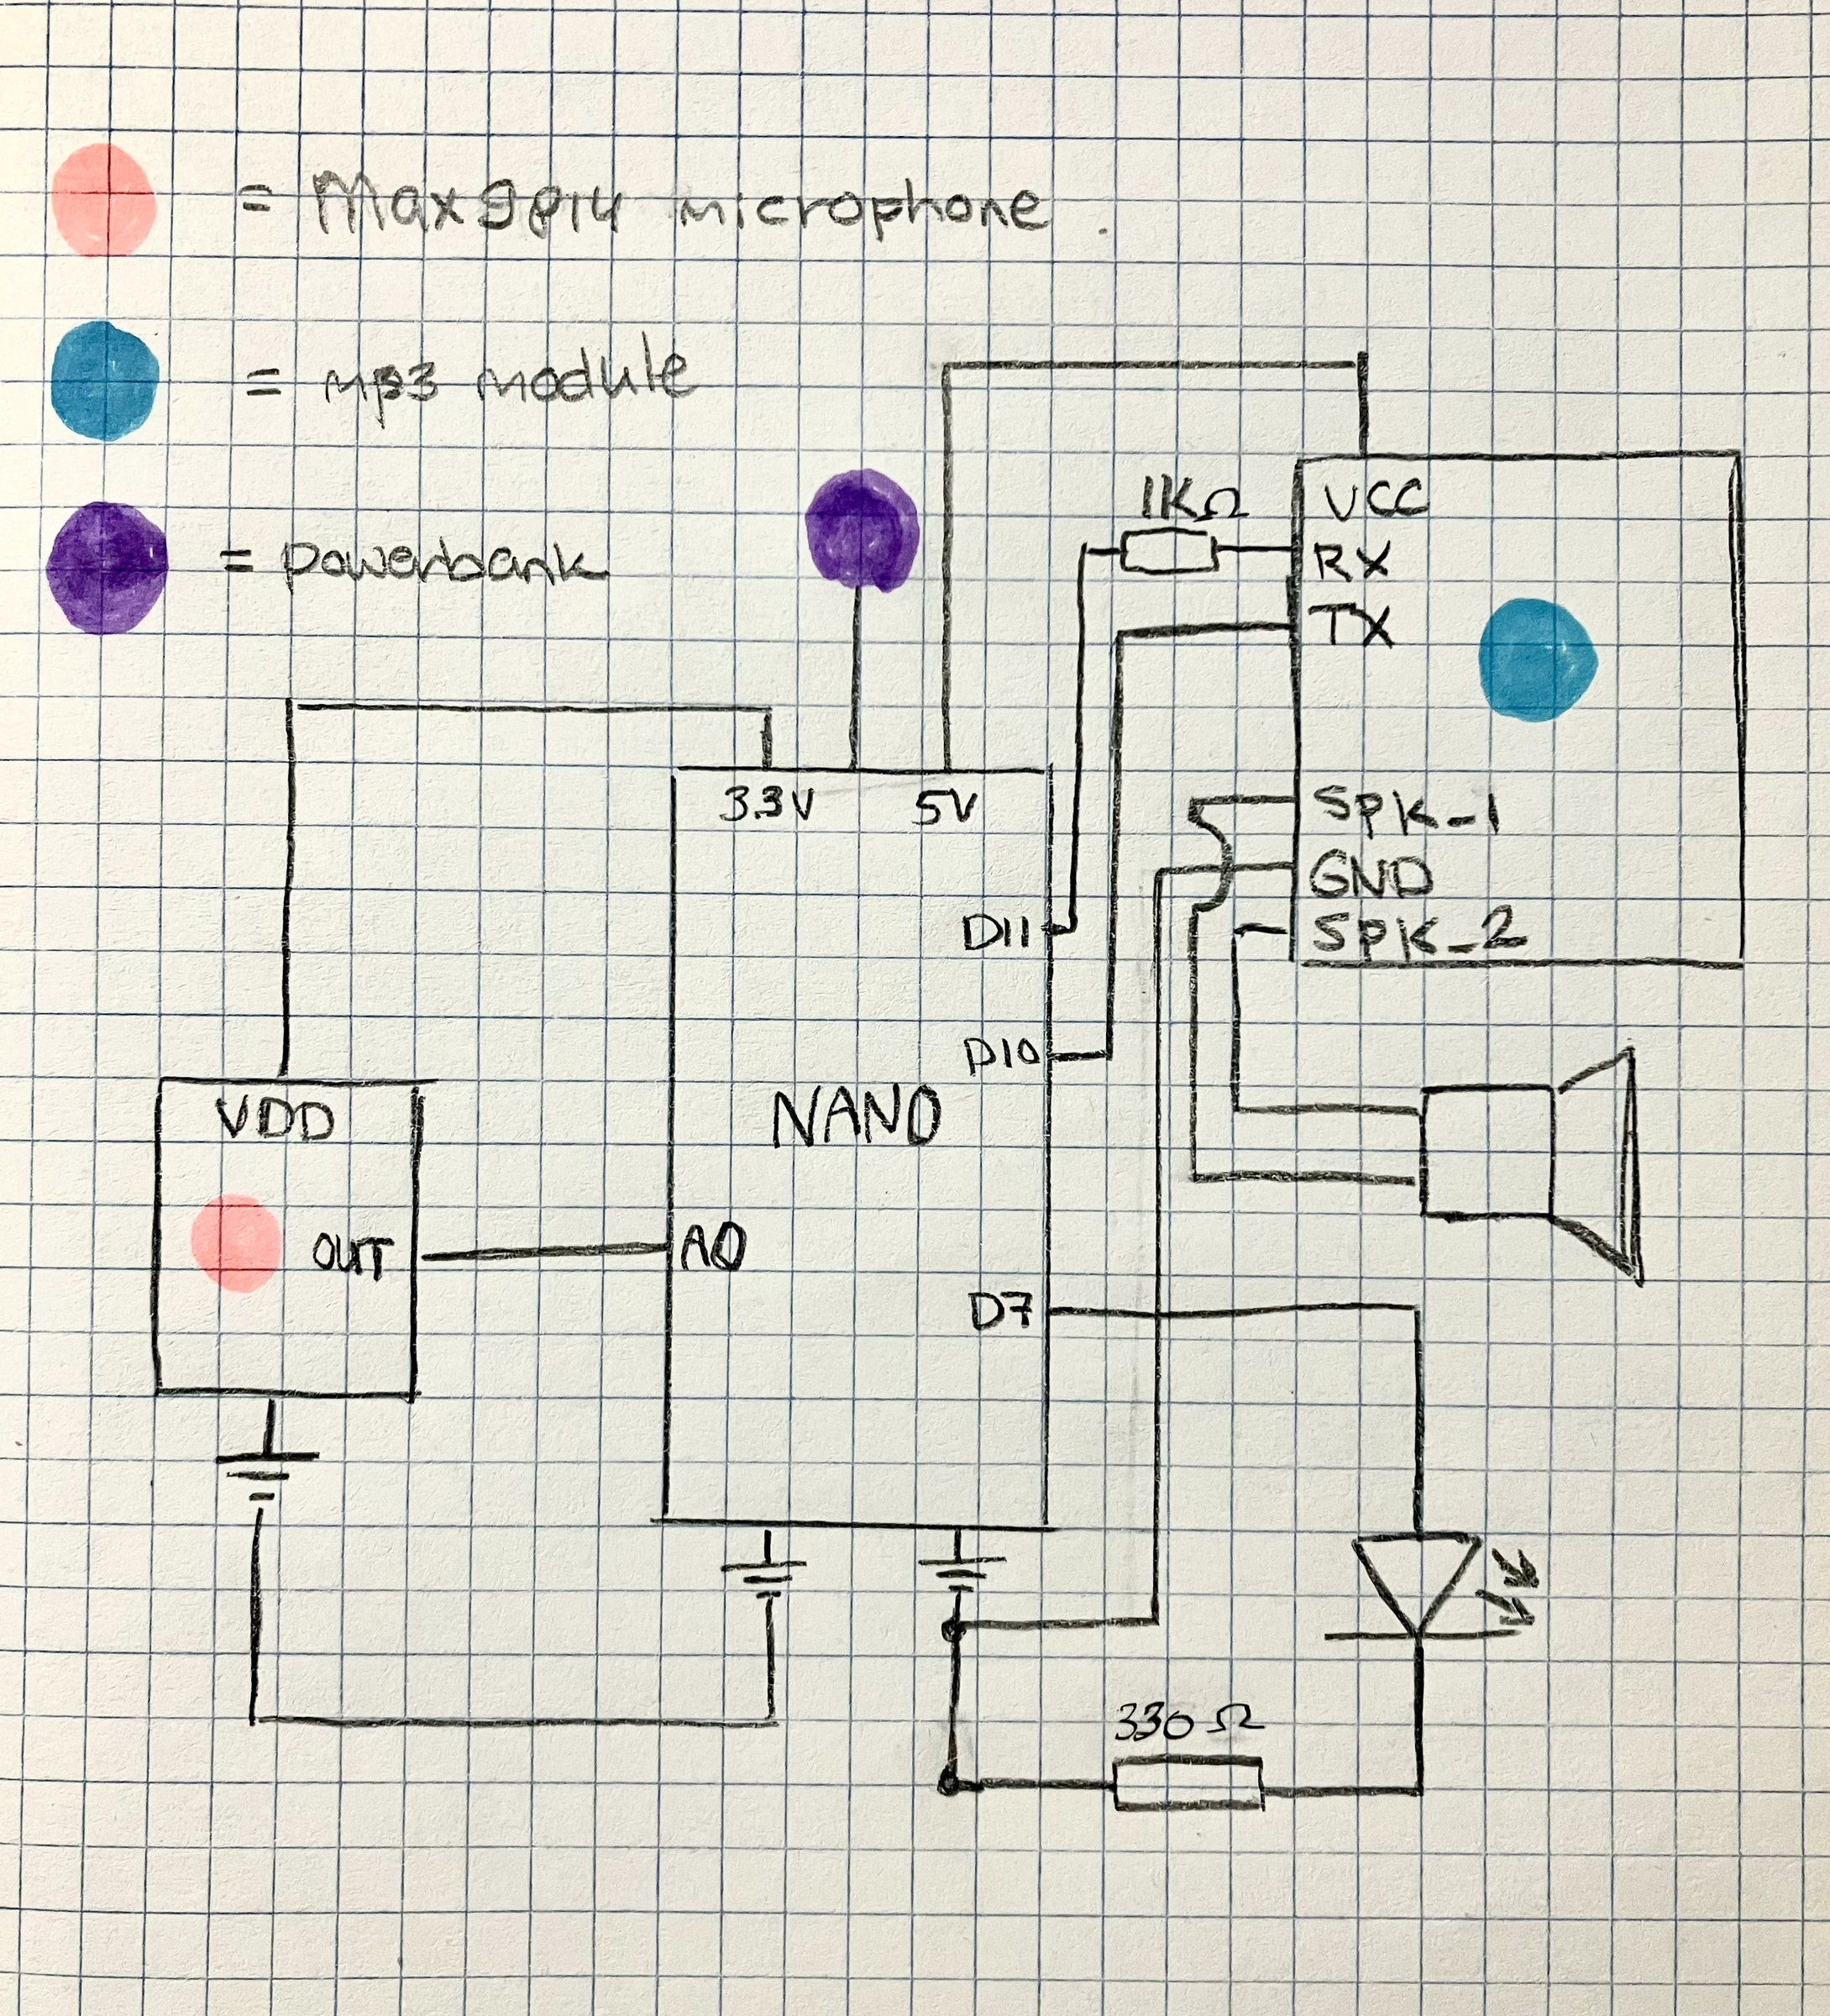 = Max9814 microphone.
= mp3 module
= powerbank
1KΩ
VCC
RX
TX
3.3V 5V
SPK_1
GND
SPK_2
D11
D10
NANO
VDD
OUT
A0
D7
330 Ω